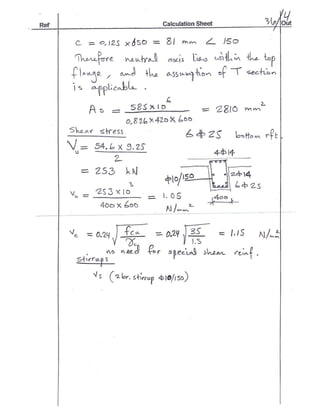 Ref Calculation Sheet 3/4 Out
C = 0,125 x 650 = 81 mm < 150
Therefore neutral axis lies within the top
flange, and the assumption of T section
is applicable.
As = 585 x 10⁶ / 0,826 x 420 x 600 = 2810 mm²
Shear stress
6 Φ 25 bottom rft
Vu = 54.6 x 9.25 / 2
4Φ14
= 253 kN
Φ10/150
2Φ14
6Φ25
vu = 253 x 10³ / 400 x 600 = 1.05 N/mm²
400
vc = 0.24 √(fcu / γc) = 0.24 √(35 / 1.5) = 1.15 N/mm²
no need for special shear reinf.
stirrups
Vs (2 br. stirrup Φ10/150)